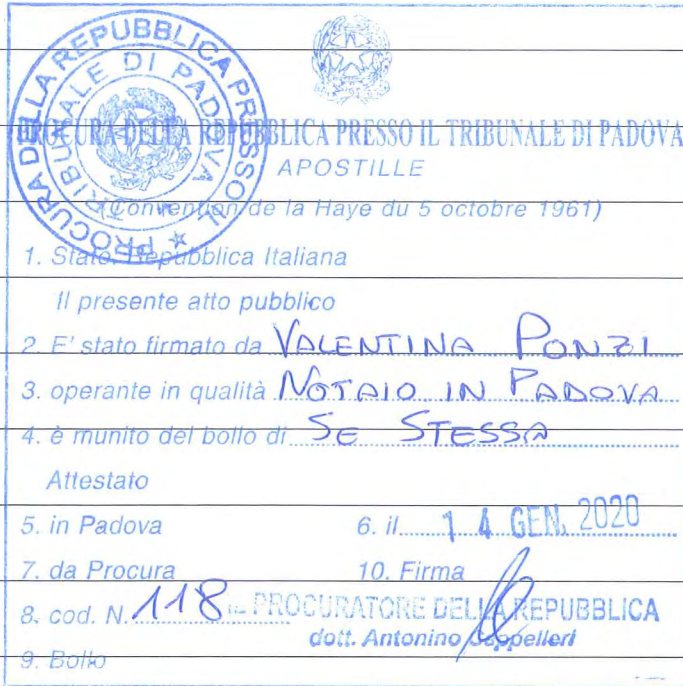 PROCURA DELLA REPUBBLICA PRESSO IL TRIBUNALE DI PADOVA
PROCURA DELLA REPUBBLICA PRESSO IL TRIBUNALE DI PADOVA
APOSTILLE
(Convention de la Haye du 5 octobre 1961)
1. Stato: Repubblica Italiana
Il presente atto pubblico
2. E' stato firmato da VALENTINA PONZI
3. operante in qualità NOTAIO IN PADOVA
4. è munito del bollo di SE STESSA
Attestato
5. in Padova 6. il 14 GEN. 2020
7. da Procura 10. Firma
8. cod. N. 118 IL PROCURATORE DELLA REPUBBLICA
dott. Antonino Cappelleri
9. Bollo